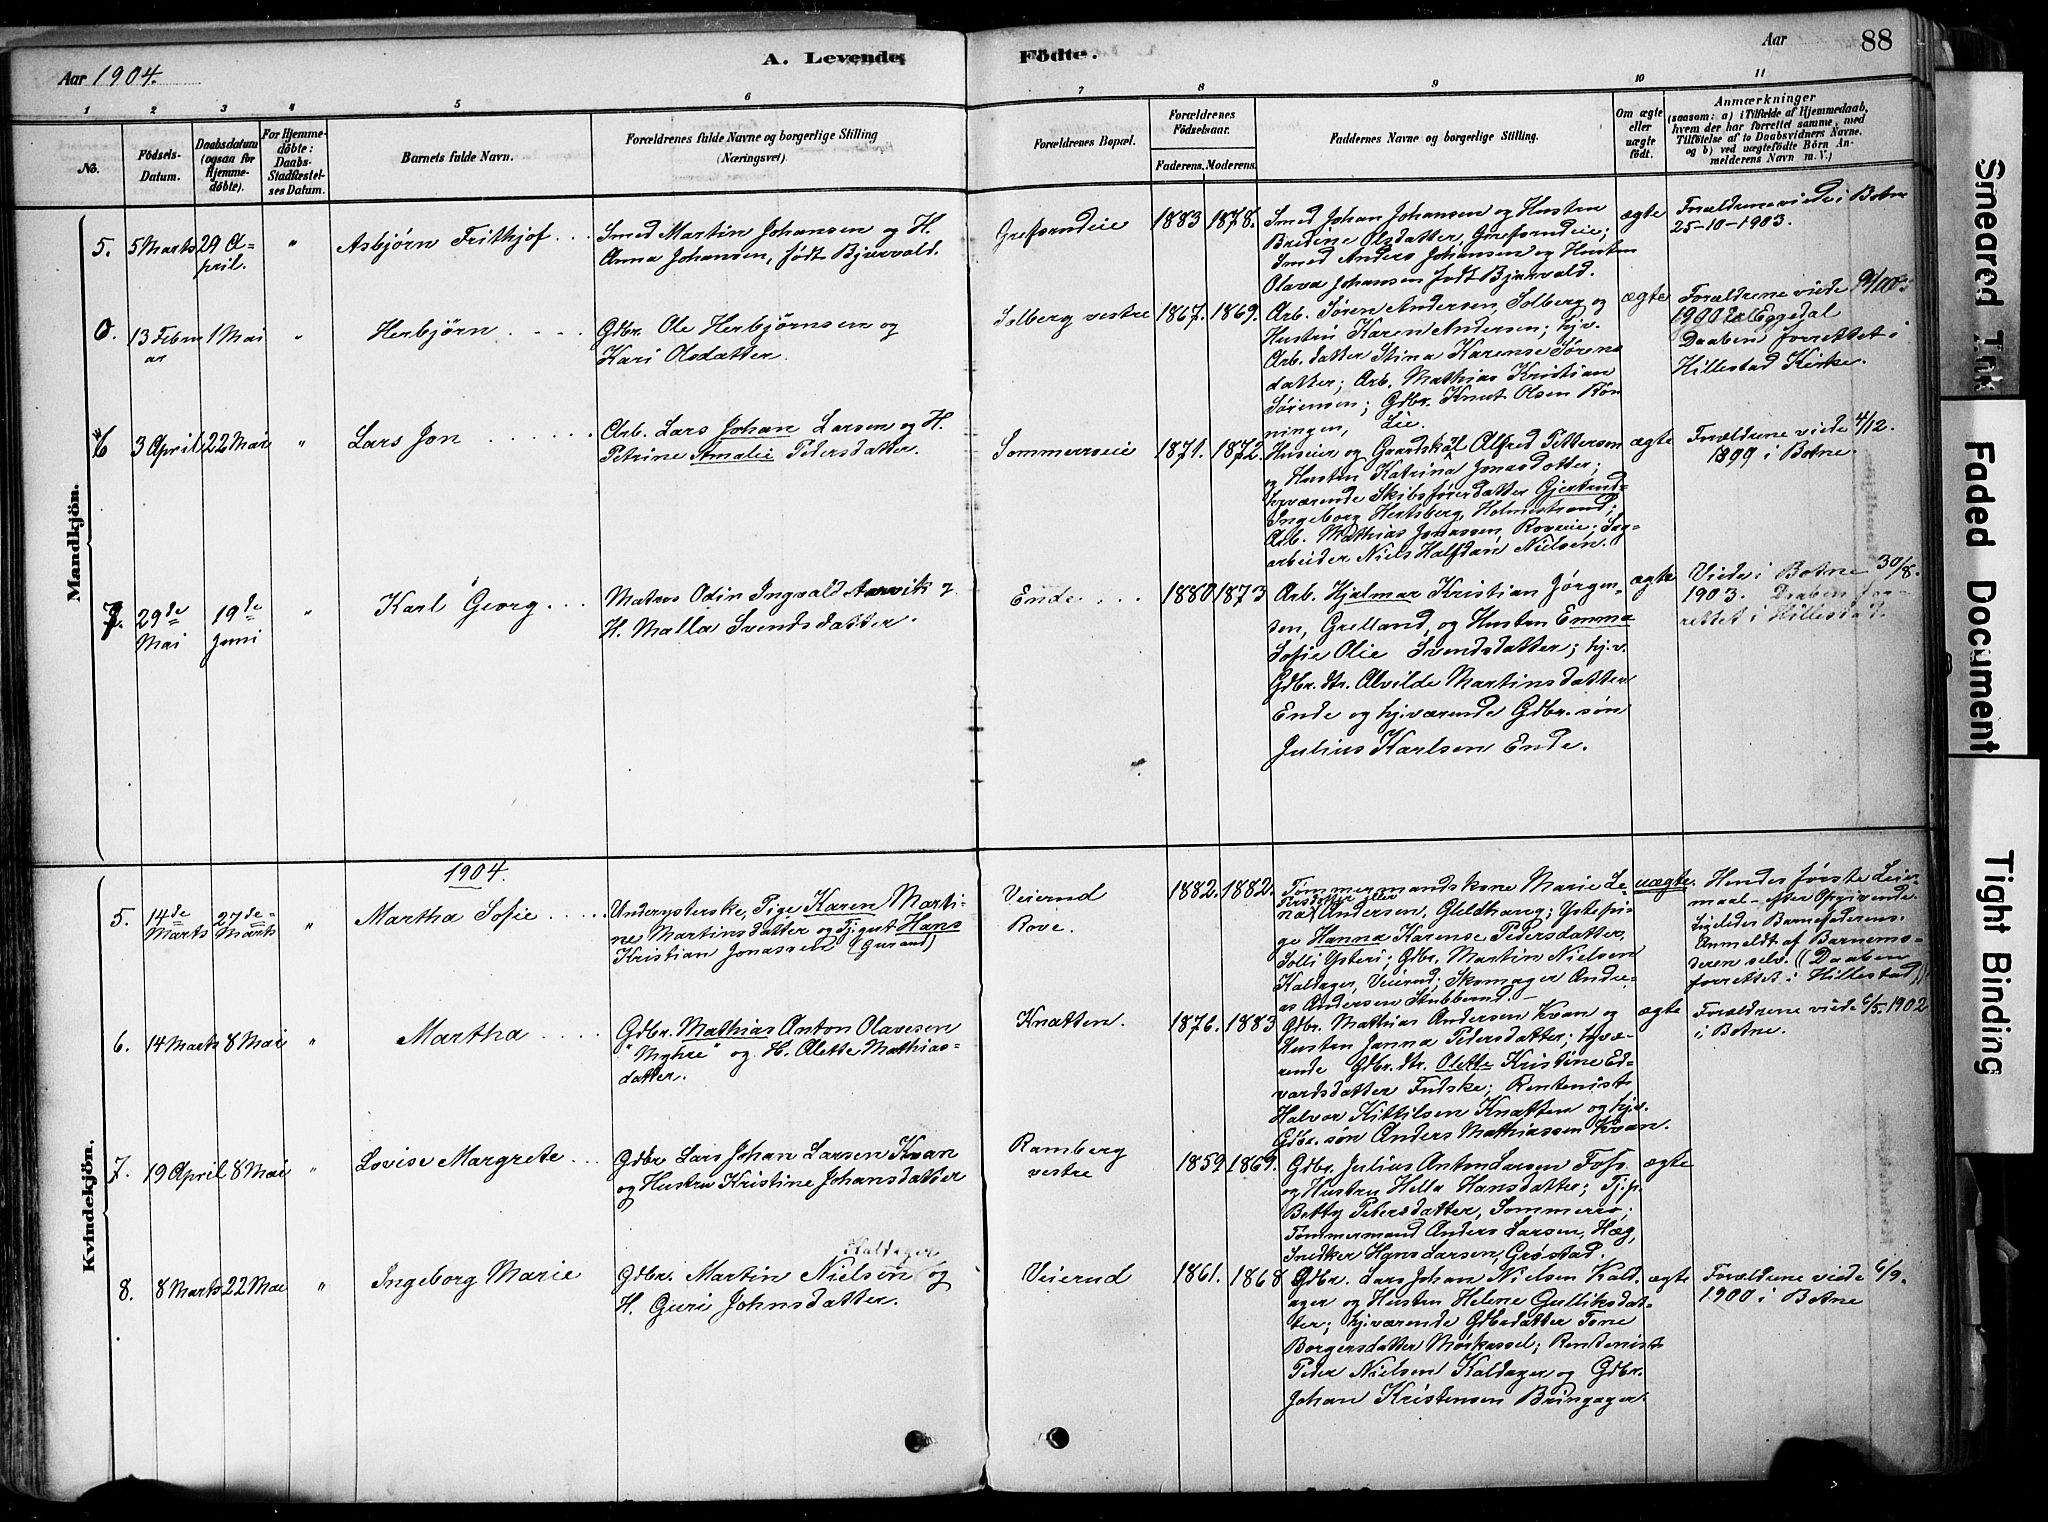 Aar 1904.
A. Levende
Födte.
Aar
88
1 2 3 4 5 6 7 8 9 10 11
No.
Födsels-
Datum.
Daabsdatum
(ogsaa for
Hjemme-
døbte).
For Hjemme-
døbte:
Daabs-
Stadfæstel-
ses Datum.
Barnets fulde Navn.
Forældrenes fulde Navne og borgerlige Stilling
(Næringsvei).
Forældrenes Bopæl.
Forældrenes
Fødselsaar.
Faderens. Moderens.
Faddernes Navne og borgerlige Stilling.
Om ægte
eller
uægte
født.
Anmærkninger
(saasom: a) i Tilfælde af Hjemmedaab,
hvem der har forrettet samme, med
Tilföielse af to Daabsvidners Navne.
og b) ved uægtefödte Börn An-
melderens Navn m. V.)
Mandkjön.
5. 5 Marts 29 A-
pril. " Asbjørn Frithjof
Smed Martin Johansen og H.
Anna Johansen, født Bjerevald.
1883 1878.
Smed Johan Johansen og Hustru
Bredine Olsdatter,
Smed Anders Johansen og Hustru
Olava Johansen født
ægte
Forældrene viede i Botne
25-10-1903.
0. 13 Febru
ar 1 Mai " Herbjørn
Gdbr. Ole Herbjørnsen og
Kari Olsdatter.
Solberg vestre 1867. 1869.
Arb. Søren Andersen, Solberg og
Hustru Karen Andersen; hjv.
Arb. datter Stina Karense Sørens
datter; Arb. Mathias Kristian
Sørensen; Gdbr. Knut Olsen Røn
ningen, Lie.
ægte
Forældrene viede
1900 i Eggedal
Daaben forrettet i
Hillestad Kirke.
6 3 April 22 Mai " Lars Jon
Arb. Lars Johan Larsen og H.
Petrine Amalie Pedersdatter.
Sommerseie 1871. 1872.
Huseier og Alfred Pettersen
og Hustru Katrina Jonasdotter;
hjværende Skibsførerdatter Gjertrud-
Ingeborg Hertsberg, Holmestrand;
Arb. Mathias Jonassen, Roveeie; Sag-
arbeider Niels Halfdan Nielsen.
ægte
Forældrene viede 4/12.
1899 i Botne.
7. 29de
Mai 19de
Juni " Karl Georg
Matros Odin Ingvald Aarvik og
H. Malla Svendsdatter.
Ende 1880 1873
Arb. Hjalmar Kristian Jørgen-
sen, Grelland, og Hustru Emma
Sofie Olie Svendsdatter; hj.v.
Gdbr. dtr. Alvilde Martinsdatter
Ende og hjværende Gdbr. søn
Julius Karlsen Ende.
ægte
Viede i Botne 30/8.
1903. Daaben for-
rettet i Hillestad.
Kvindekjön.
1904.
5. 14de
Marts 27de
Marts " Martha Sofie
Underysterske, Pige Karen Marti-
ne Martinsdatter og Tjgut Hans
Kristian Jonassen (Gurand)
Veierud
Rove.
1882. 1882.
Tømmermandskone Marie Le-
na Andersen, Gleldhaug; Ystepi-
ge Hanna Karense Pedersdatter,
Solli Ysteri; Gdbr. Martin Nielsen
Kaldager, Veierud; Skomager Andre-
as Andersen Stubberud.
uægte.
Hendes første Leier-
maal - efter Opgivende.
Ligeledes Barnefaderens.
Anmeldt af Barnemo-
deren selv. (Daaben
forrettet i Hillestad.)
6. 14 Marts 8 Mai " Martha
Gdbr. Mathias Anton Olavesen
"Myhre" og H. Olette Mathias-
datter.
Knatten. 1876. 1883
Gdbr. Mathias Andersen Kvan og
Hustru Janna Pedersdatter; hjvæ-
rende Gdbr. dtr. Olette Kristine Ed-
vardsdatter Fuske; Rentenist
Halvor Kittilsen Knatten og hj.v.
Gdbr. søn Anders Mathiassen Kvan.
ægte
Forældrene viede 6/5. 1902
i Botne.
7. 19 April 8 Mai " Lovise Margrete
Gdbr Lars Johan Larsen Kvan
og Hustru Kristine Johansdatter
Ramberg
vestre
1859. 1869.
Gdbr. Julius Anton Larsen Foss
og Hustru Hella Hansdatter; Tj.p.
Betty Petersdatter, Sommerro;
Tømmermand Anders Larsen, Hæg,
Snedker Hans Larsen, Grøstad.
ægte
8. 8 Marts 22 Mai " Ingeborg Marie
Kaldager
Gdbr. Martin Nielsen og
H. Guri Johnsdatter.
Veierud 1861. 1868
Gdbr. Lars Johan Nielsen Kald-
ager og Hustru Helene Gulliksdat-
ter; hjværende Gdbrdatter Tone
Borgersdatter Mørkassel; Rentenist
Peder Nielsen Kaldager og Gdbr.
Johan Kristensen Bringager.
ægte
Forældrene viede 6/9.
1900 i Botne
Smeared Ink
Faded Document
Tight Binding